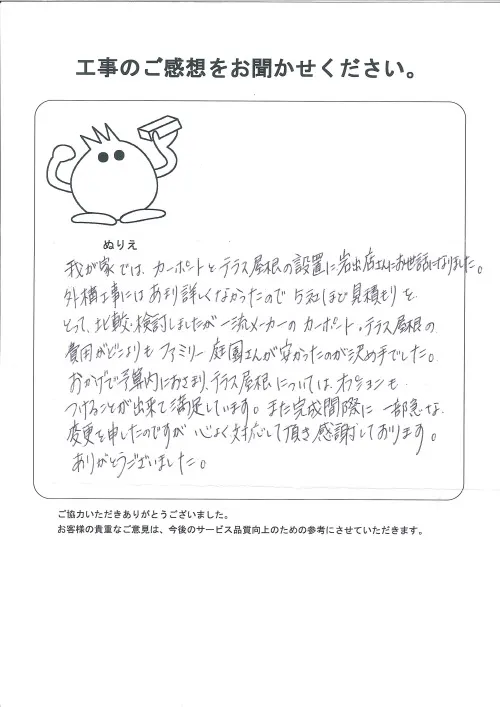 工事のご感想をお聞かせください。
ぬりえ
我が家では、カーポートとテラス屋根の設置に岩出店さんにお世話になりました。
外構工事にはあまり詳しくなかったので5社ほど見積もりを
とって、比較・検討しましたが一流メーカーのカーポート・テラス屋根の
費用がどこよりもファミリー庭園さんが安かったのが決め手でした。
おかげで予算内におさまり、テラス屋根については、オプションも
つけることが出来て満足しています。また完成間際に一部急な
変更を申したのですが心よく対応して頂き感謝しております。
ありがとうございました。
ご協力いただきありがとうございました。
お客様の貴重なご意見は、今後のサービス品質向上のための参考にさせていただきます。